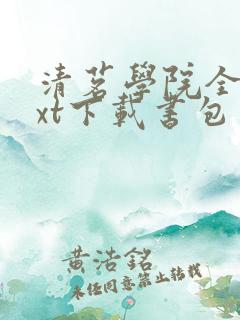 清茗學院全
xt下載書包
黄浩銘
未经同意禁止转载